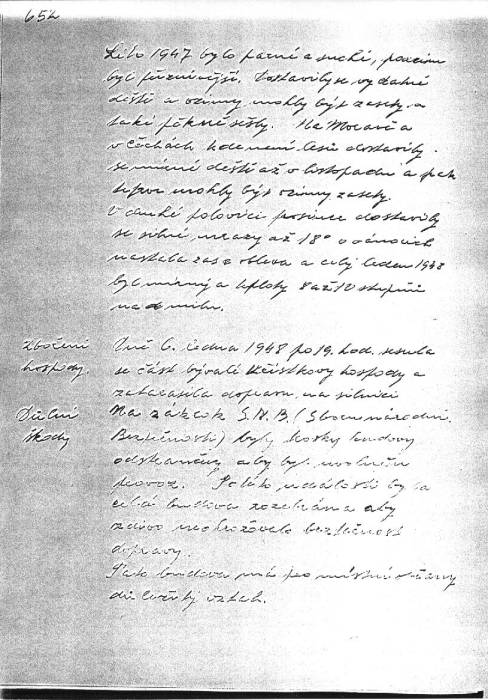 652
Léto 1947 bylo parné a suché, podzim
byl příznivější. Dostavily se vydatné
deště a ozimy mohly být zasety a
také pěkně sešly. Na Moravě a
v Čechách kde není lesů dostavily
se mírné deště až v listopadu a pak
teprve mohly být ozimy zasety.
V druhé polovici prosince dostavily
se silné mrazy až 18° o vánocích
nastala zase obleva a celý leden 1948
byl mírný a teploty 8 až 10 stupňů
nad nulu.
Zbočení
hospody.
Dne 6. ledna 1948 po 19. hod. sesula
se část bývalé Křístkovy hospody a
zatarasila dopravu na silnici
Důlní
škody
Na zákrok S.N.B. (Sboru národní
Bezpečnosti) byly kusy budovy
odstraněny aby byl umožněn
provoz. Po této události byla
celá budova rozebrána aby
zdivo neohrožovalo bezpečnost
dopravy.
Tato budova má pro místní občany
důležitý vztah.